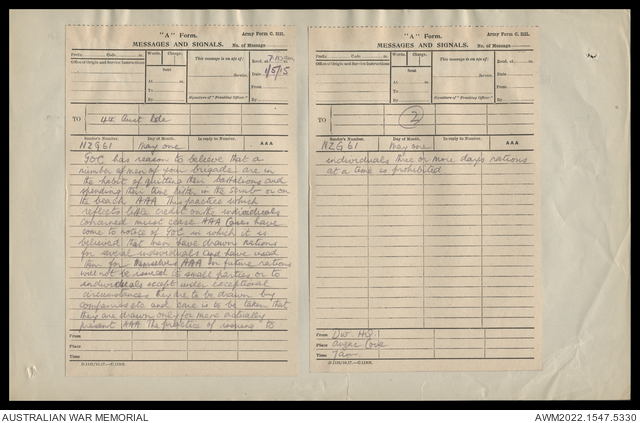 "A" Form.
Army Form C. 2121.
MESSAGES AND SIGNALS.
No. of Message
Prefix Code m.
Words. Charge.
This message is on a/c of:
Recd. at 7.10 am
Office of Origin and Service Instructions
Sent
Service.
Date 1/5/15
At m.
From
To
By
(Signature of "Franking Officer.")
By
TO
4th Aust Bde
Sender's Number. Day of Month. In reply to Number. AAA
NZG61 May one
GOC has reason to believe that a
number of men of your brigade are in
the habit of quitting their battalions and
spending their time either in the scrub or on
the beach AAA This practice which
reflects little credit on the individuals
concerned must cease AAA Cases have
come to notice of GOC in which it is
believed that men have drawn rations
for several individuals and have used
them for themselves AAA In future rations
will not be issued to small parties or to
individuals except under exceptional
circumstances they are to be drawn by
companies etc and care is to be taken that
they are drawn only for men actually
present AAA The practice of issuing to
From
Place
Time
"A" Form.
Army Form C. 2121.
MESSAGES AND SIGNALS.
No. of Message
Prefix Code m.
Words. Charge.
This message is on a/c of:
Recd. at m.
Office of Origin and Service Instructions
Sent
Service.
Date
At m.
From
To
By
(Signature of "Franking Officer.")
By
TO
2
Sender's Number. Day of Month. In reply to Number. AAA
NZG61 May one
individuals three or more days rations
at a time is prohibited
From Div. HQ
Place Anzac Cove
Time 7am
AUSTRALIAN WAR MEMORIAL
AWM2022.1547.5330